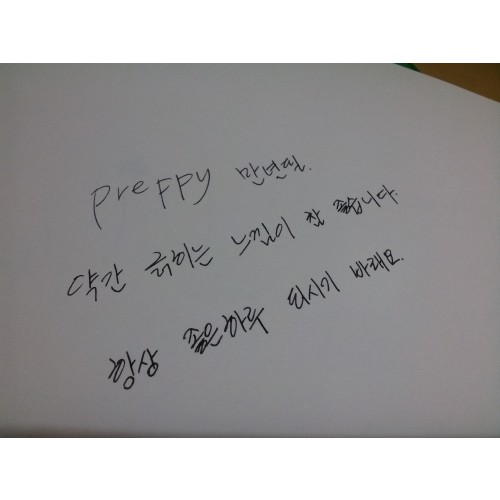 preppy 만년필.
약간 긁히는 느낌이 참 좋습니다.
항상 좋은하루 되시기 바래요.